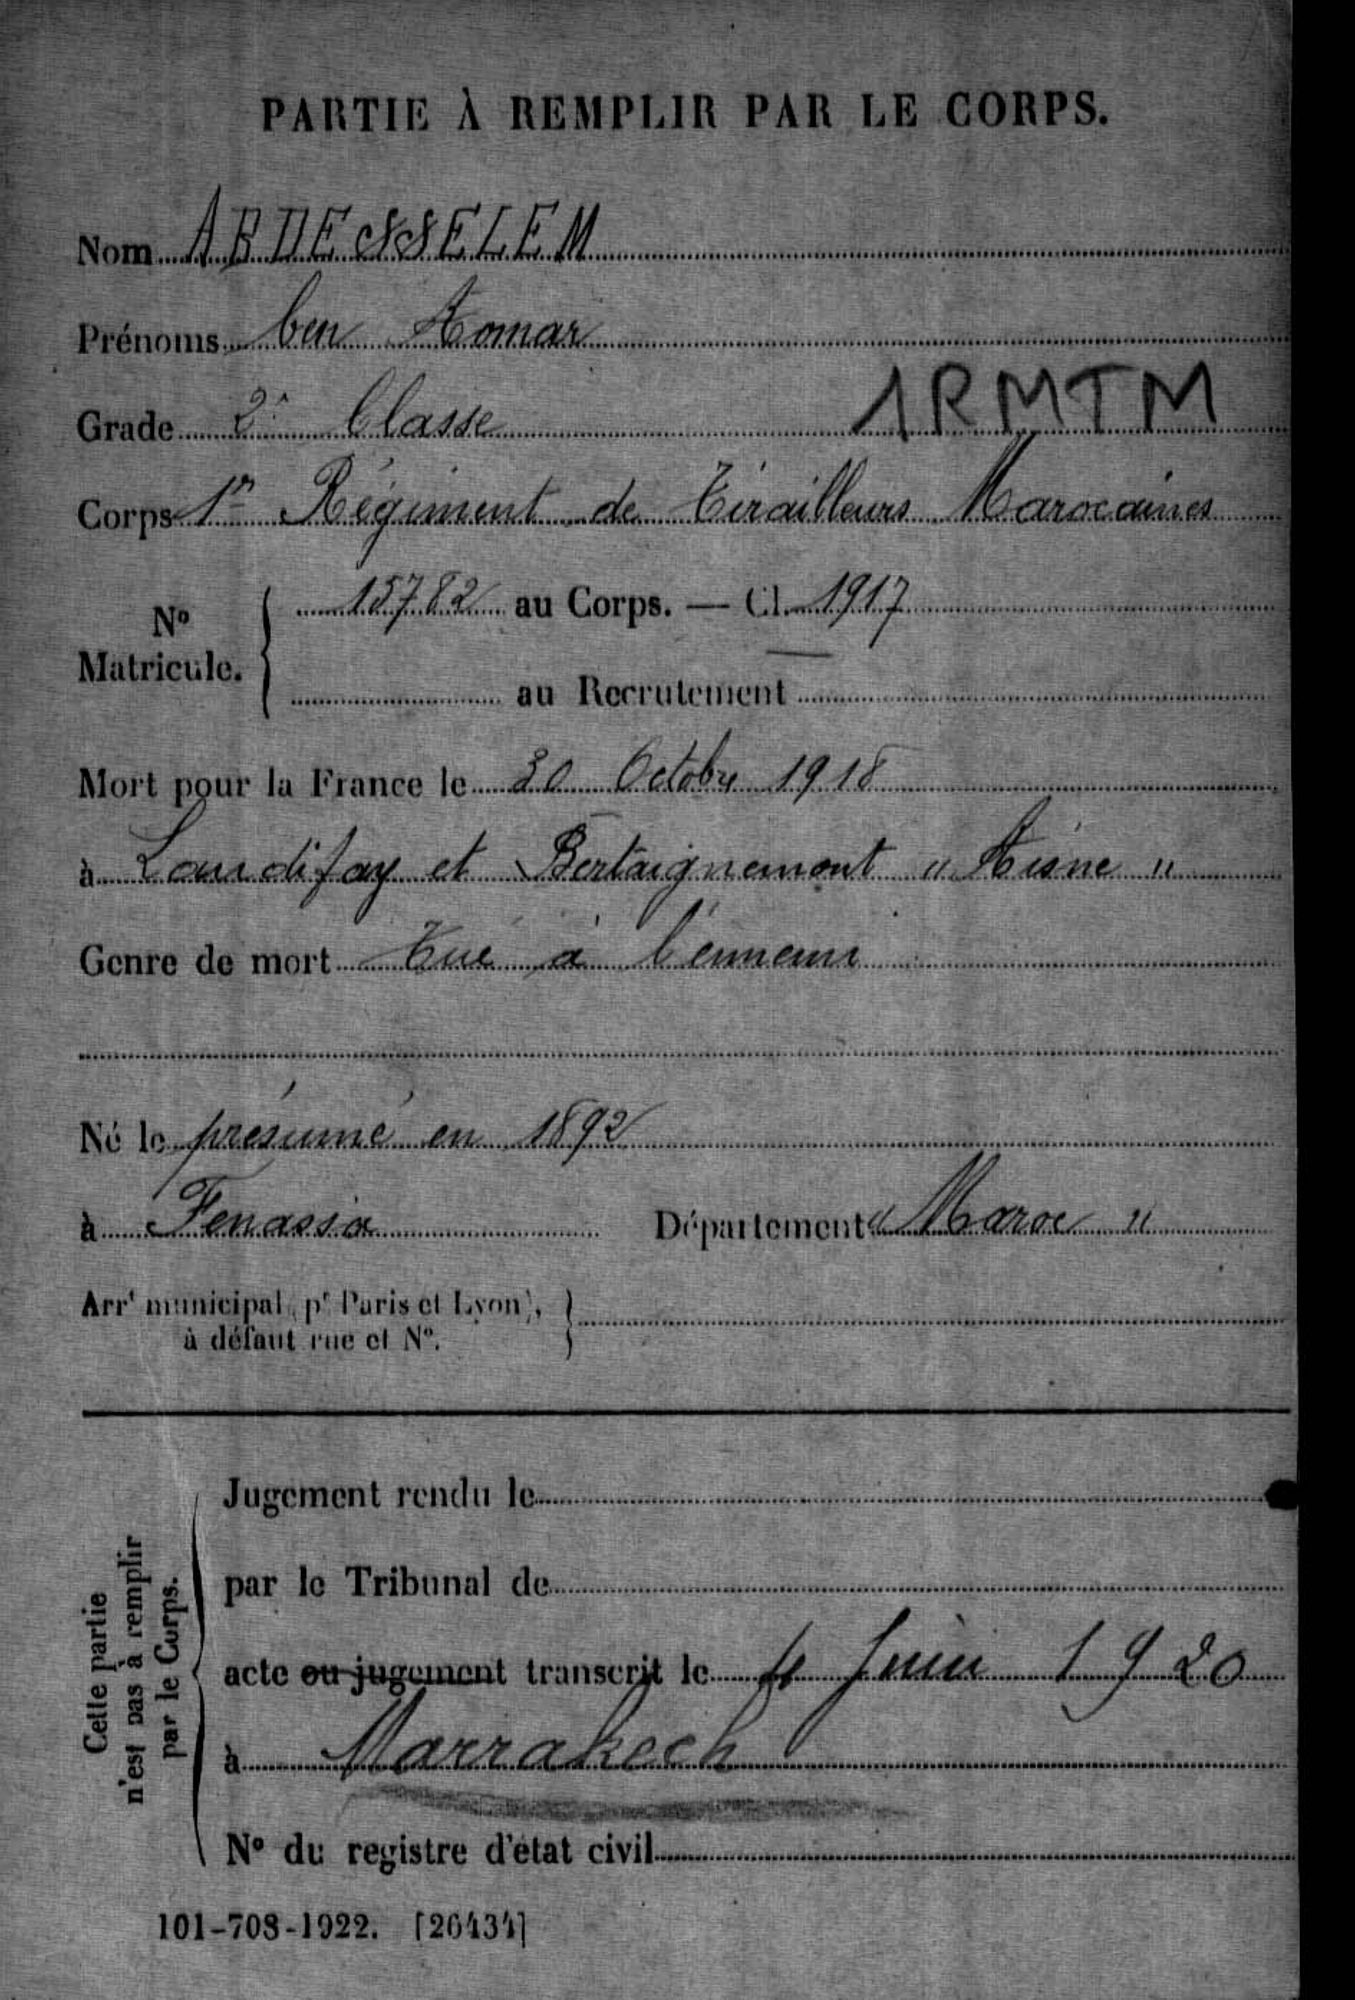 PARTIE À REMPLIR PAR LE CORPS.
Nom ABDESSELEM
Prénoms ben Aomar
Grade 2e Classe
1RMTM
Corps 1er Régiment de Tirailleurs Marocaines
No Matricule. 15782 au Corps. — Cl. 1917
au Recrutement
Mort pour la France le 30 Octobre 1918
à Landifay et Bertaignemont "Aisne"
Genre de mort Tué à l'ennemi
Né le présumé en 1892
à Fenassia Département "Maroc"
Arrt municipal (pr Paris et Lyon),
à défaut rue et No.
Cette partie
n'est pas à remplir
par le Corps.
Jugement rendu le
par le Tribunal de
acte ou jugement transcrit le 4 Juin 1920
à Marrakech
No du registre d'état civil
101-708-1922. [26434]